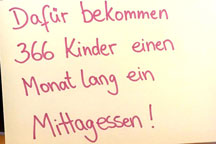 Dafür bekommen
366 Kinder einen
Monat lang ein
Mittagessen!